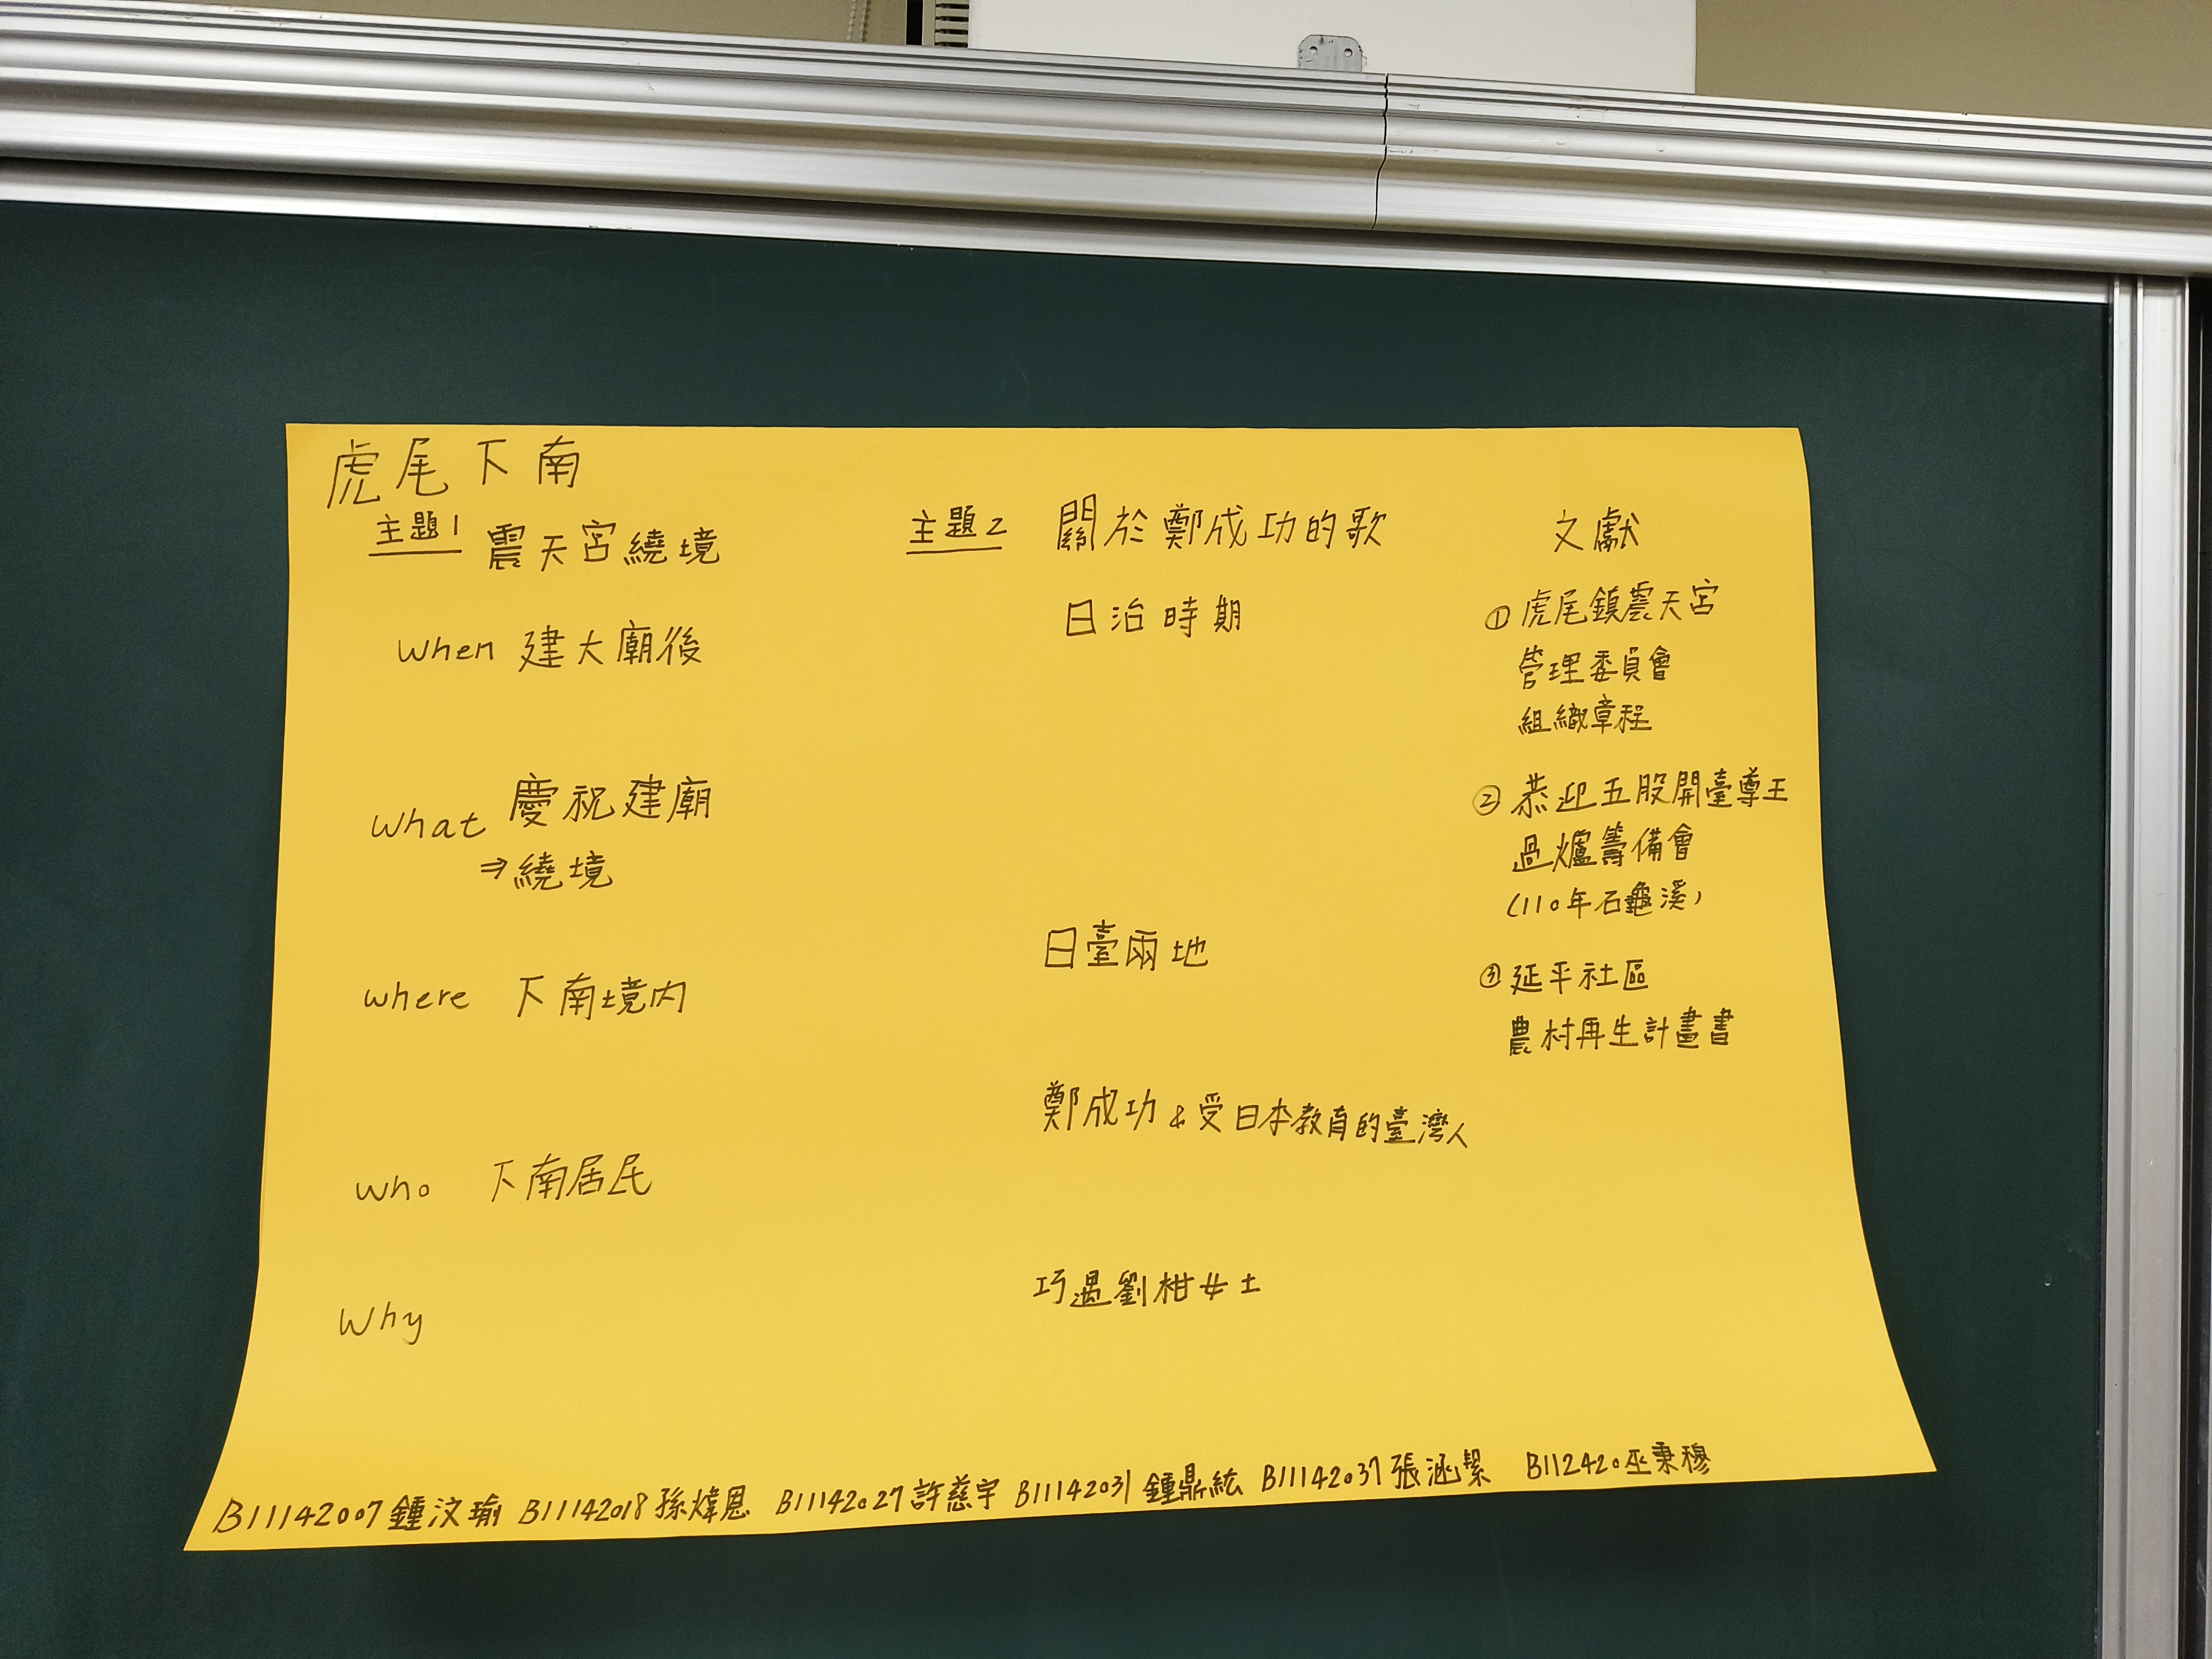 虎尾下南
主題1 震天宮繞境
When 建大廟後
What 慶祝建廟
⇒繞境
where 下南境内
who 下南居民
Why
主題2 關於鄭成功的歌
日治時期
日臺兩地
鄭成功 & 受日本教育的臺灣人
巧遇劉柑女士
文獻
① 虎尾鎮震天宮
管理委員會
組織章程
② 恭迎五股開臺尊王
過爐籌備會
(110年石龜溪)
③ 延平社區
農村再生計畫書
B11142007 鍾汶瑜 B11142018 孫煒恩 B11142027 許慈宇 B11142031 鍾鼎紘 B11142037 張涵絜 B112420 巫秉穆